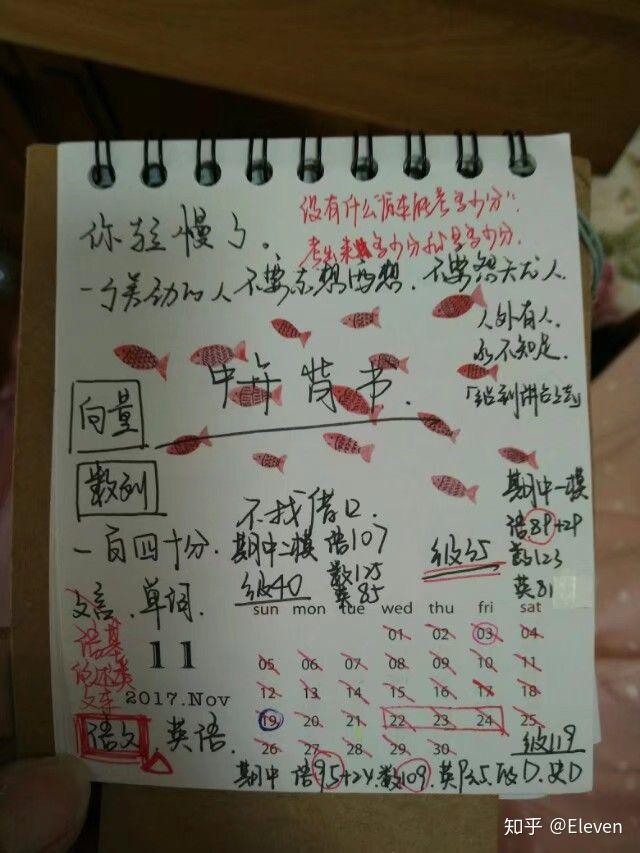 没有什么"原本能考多少分".
考出来多少分就是多少分.
你拉慢了.
一个美的人不要东想西想.不要怨天尤人.
人外有人.
永不知足.
「站到讲台上去」
中午背书.
向量
数列
不找借口.
一百四十分.
期中二模 语107
数125
英85
级40
级35
期中一模
语89+29
数123
英81
文言.单词.
语基
11
2017.Nov
语文.英语.
sun mon tue wed thu fri sat
01 02 03 04
05 06 07 08 09 10 11
12 13 14 15 16 17 18
19 20 21 22 23 24 25
26 27 28 29 30
级119
期中 语95+24.数109.英 D.史D
知乎 @Eleven